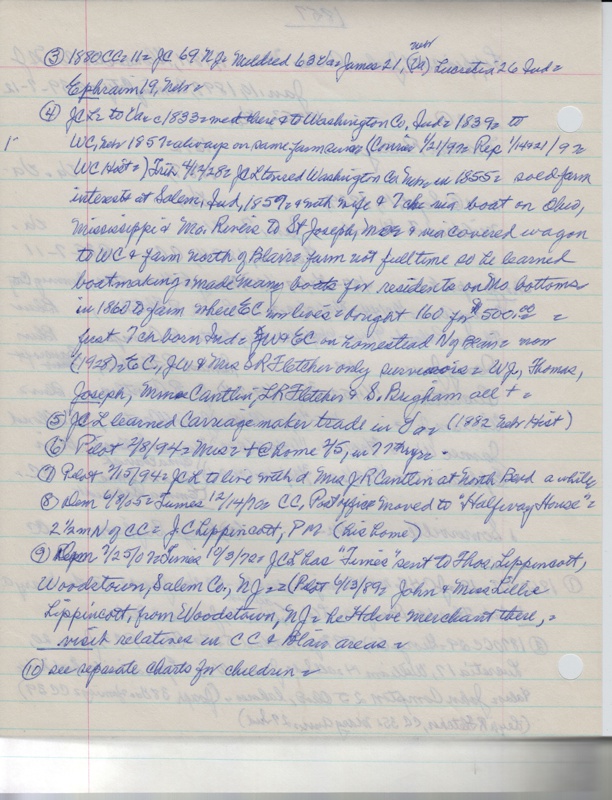 ③ 1880 CC = 11 = JC 69 NJ = Mildred 63 Va = James 21, (Va) Lucretia 26 Ind =
Nebr
Ephraim 19, Nebr =
④ JCL = to Va = c1833 = met there & to Washington Co, Ind = 1839 = to
WC, Nebr 1857 = always on same farm = 1/21/9 = Rep 1/14+21/9 =
WC Hist =) Trib 4/12/28 = JCL toured Washington Co Nebr in 1855 = sold farm
interests at Salem, Ind, 1857 = & with wife & 7 ch = via boat on Ohio,
Mississippi & Mo. Rivers to St Joseph, Mo = & via covered wagon
to WC & farm north of Blair = farm not full time so he learned
bootmaking & made many boots for residents on Mo bottoms =
in 1860 to farm where EC now lives = bought 160 for $500.00 =
first 7 ch born Ind = JW & EC on homestead N of Blair = now
(1928) = EC, JW & Mrs SR Fletcher only survivors = WJ, Thomas,
Joseph, Mmes Cantlin, LR Fletcher & S. Brigham all + =
⑤ JCL learned Carriage maker trade in Va = (1882 Nebr Hist)
⑥ Pilot 2/8/94 = Mrs = + @ home 2/5, in 77th yr =
⑦ Pilot 2/15/94 = JCL to live with d Mrs JR Cantlin at North Bend a while
⑧ Dem 4/8/05 = Times 12/14/72 = CC, Post office moved to "Halfway House" =
2 1/2 m N of CC = JC Lippincott, PM (his home)
⑨ 2/25/07 = Times 10/3/72 = JCL has "Times" sent to Thos, Lippincott,
Woodstown, Salem Co, NJ = = (Pilot 6/13/89 = John & Miss Lillie
Lippincott, from Woodstown, NJ = he + live merchant there, =
visit relatives in CC & Blair areas =
⑩ see separate charts for children =